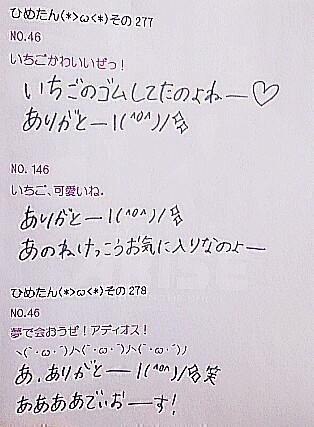 ひめたん(*>ω<*)その277
NO.46
いちごかわいいぜっ！
いちごのゴムしてたのよねー♡
ありがとーｌ(^o^)ﾉ彡
NO.146
いちご、可愛いね。
ありがとーｌ(^o^)ﾉ彡
あのねけっこうお気に入りなのよー
ひめたん(*>ω<*)その278
NO.46
夢で会おうぜ！アディオス！
ヽ(´･ω･`)ﾉヽ(´･ω･`)ﾉヽ(´･ω･`)ﾉ
あ、ありがとーｌ(^o^)ﾉ彡笑
ああああでぃおーす!